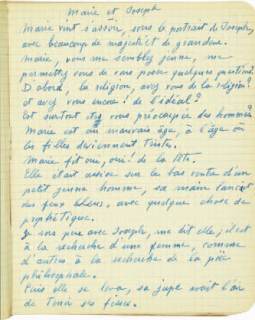 Marie et Joseph
Marie vint s'asseoir, sous le portrait de Joseph,
avec beaucoup de majesté et de grandeur.
Marie, vous me semblez jeune, me
permettez vous de vous poser quelques questions?
D'abord, la religion, avez vous de la religion?
et avez vous encore de l'idéal?
Est surtout êtes vous préoccupée des hommes?
Marie est au mauvais âge, à l'âge où
les filles deviennent tristes.
Marie fit oui, oui! de la tête.
Elle était assise sur le bas ventre d'un
petit jeune homme, sa main lançait
des feux bleus, avec quelque chose de
prophétique.
Je vois peu avec Joseph, me dit elle, il est
à la recherche d'une femme, comme
d'autres à la recherche de la
philosophale.
Puis elle se leva, sa jupe avait l'air
de tenir ses